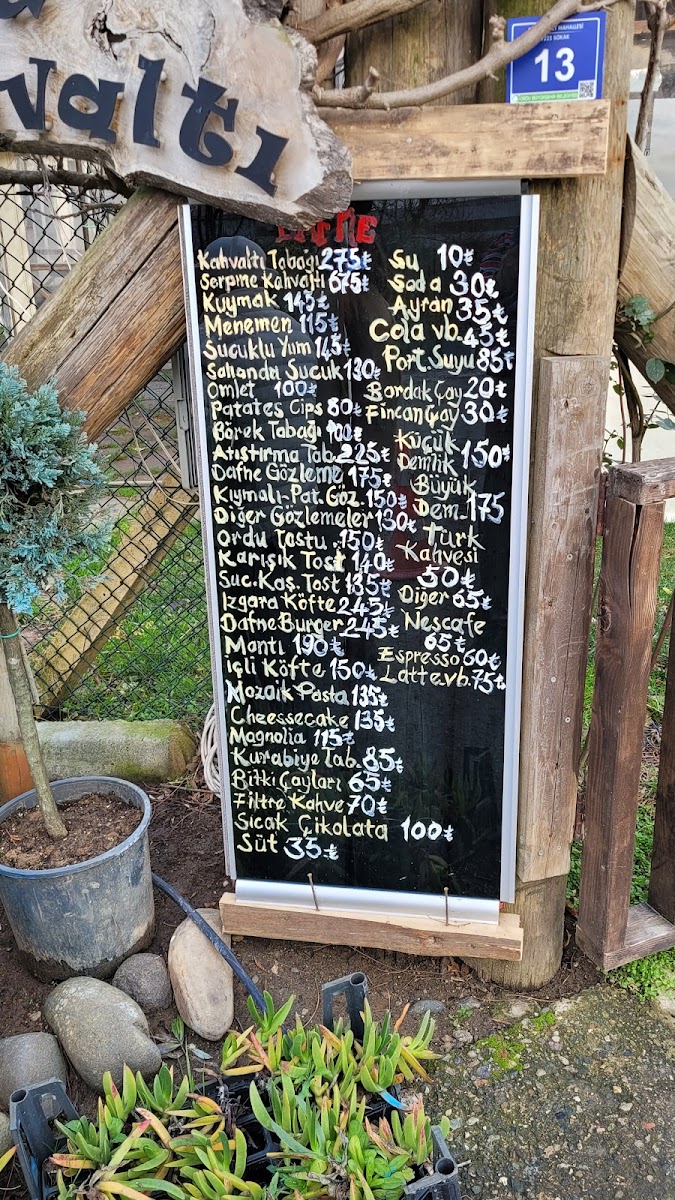 valtı
MAHALLESİ
SOKAK
13
Kahvaltı Tabağı 275₺
Serpme Kahvaltı 675₺
Kuymak 145₺
Menemen 115₺
Sucuklu Yum 145₺
Sahanda Sucuk 130₺
Omlet 100₺
Patates Cips 80₺
Börek Tabağı 100₺
Atıştırma Tab. 225₺
Dafne Gözleme 175₺
Kıymalı-Pat. Göz. 150₺
Diğer Gözlemeler 130₺
Ordu Tostu . 150₺
Karışık Tost 140₺
Suc. Kaş. Tost 135₺
Izgara Köfte 245₺
Dafne Burger 245₺
Mantı 190₺
içli Köfte 150₺
Mozaik Pasta 135₺
Cheessecake 135₺
Magnolia 115₺
Kurabiye Tab. 85₺
Bitki Çayları 65₺
Filtre Kahve 70₺
Sıcak Çikolata 100₺
Süt 35₺
Su 10₺
Soda 30₺
Ayran 35₺
Cola vb. 45₺
Port. Suyu 85₺
Bardak Çay 20₺
Fincan Çay 30₺
Küçük
Demlik 150₺
Büyük
Dem. 175
Türk
Kahvesi
50₺
Diğer 65₺
Nescafe
65₺
Espresso 60₺
Latte vb. 75₺